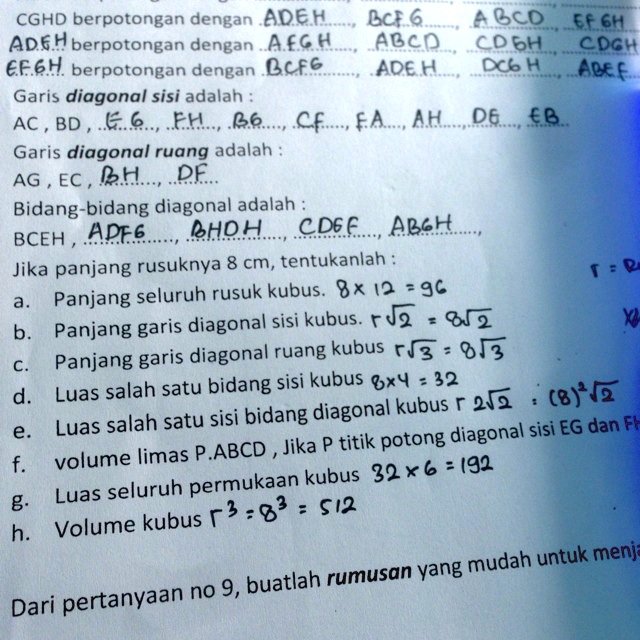 CGHD berpotongan dengan ADEH, BCFG, ABCD, EFGH
ADEH berpotongan dengan AFGH, ABCD, CDGH, CDGH
EFGH berpotongan dengan BCFG, ADEH, DCGH, ABEF
Garis diagonal sisi adalah :
AC , BD , EG, FH, BG, CF, FA, AH, DG, EB
Garis diagonal ruang adalah :
AG , EC , BH, DF
Bidang-bidang diagonal adalah :
BCEH , ADFG, BHDH, CDEF, ABGH,
Jika panjang rusuknya 8 cm, tentukanlah :
r =
a. Panjang seluruh rusuk kubus. 8 x 12 = 96
b. Panjang garis diagonal sisi kubus. r√2 = 8√2
c. Panjang garis diagonal ruang kubus r√3 = 8√3
d. Luas salah satu bidang sisi kubus 8x4 = 32
e. Luas salah satu sisi bidang diagonal kubus r 2√2 : (8)²√2
f. volume limas P.ABCD , Jika P titik potong diagonal sisi EG dan FH
g. Luas seluruh permukaan kubus 32 x 6 = 192
h. Volume kubus r³ = 8³ = 512
Dari pertanyaan no 9, buatlah rumusan yang mudah untuk